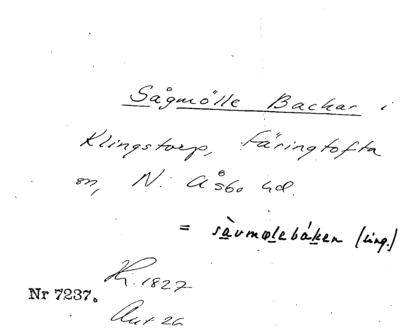 Sågmölle Backar i
Klingstorp, Färingtofta
sn, N. Åsbo hd.
= såvmølebáken (sing.)
Nr 7237.
1827
26